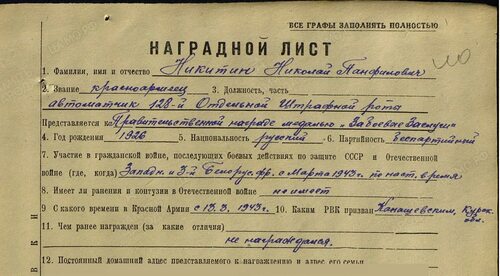 ВСЕ ГРАФЫ ЗАПОЛНЯТЬ ПОЛНОСТЬЮ
НАГРАДНОЙ ЛИСТ
1. Фамилия, имя и отчество Никитин Николай Панфилович
2. Звание красноармеец 3. Должность, часть
автоматчик 128-й Отдельной Штрафной роты
Представляется к Правительственной награде медалью "За боевые Заслуги"
4. Год рождения 1926 5. Национальность русский 6. Партийность беспартийный
7. Участие в гражданской войне, последующих боевых действиях по защите СССР и Отечественной
войне (где, когда) Западн. и 3-й Белорус. фр. с марта 1943 г по наст. время
8. Имеет ли ранения и контузии в Отечественной войне не имеет
9. С какого времени в Красной Армии с 13.3.1943 г. 10. Каким РВК призван Конашевским, Курск.
обл.
11. Чем ранее награжден (за какие отличия)
не награждался.
12. Постоянный домашний адрес представляемого к награждению и адрес его семьи